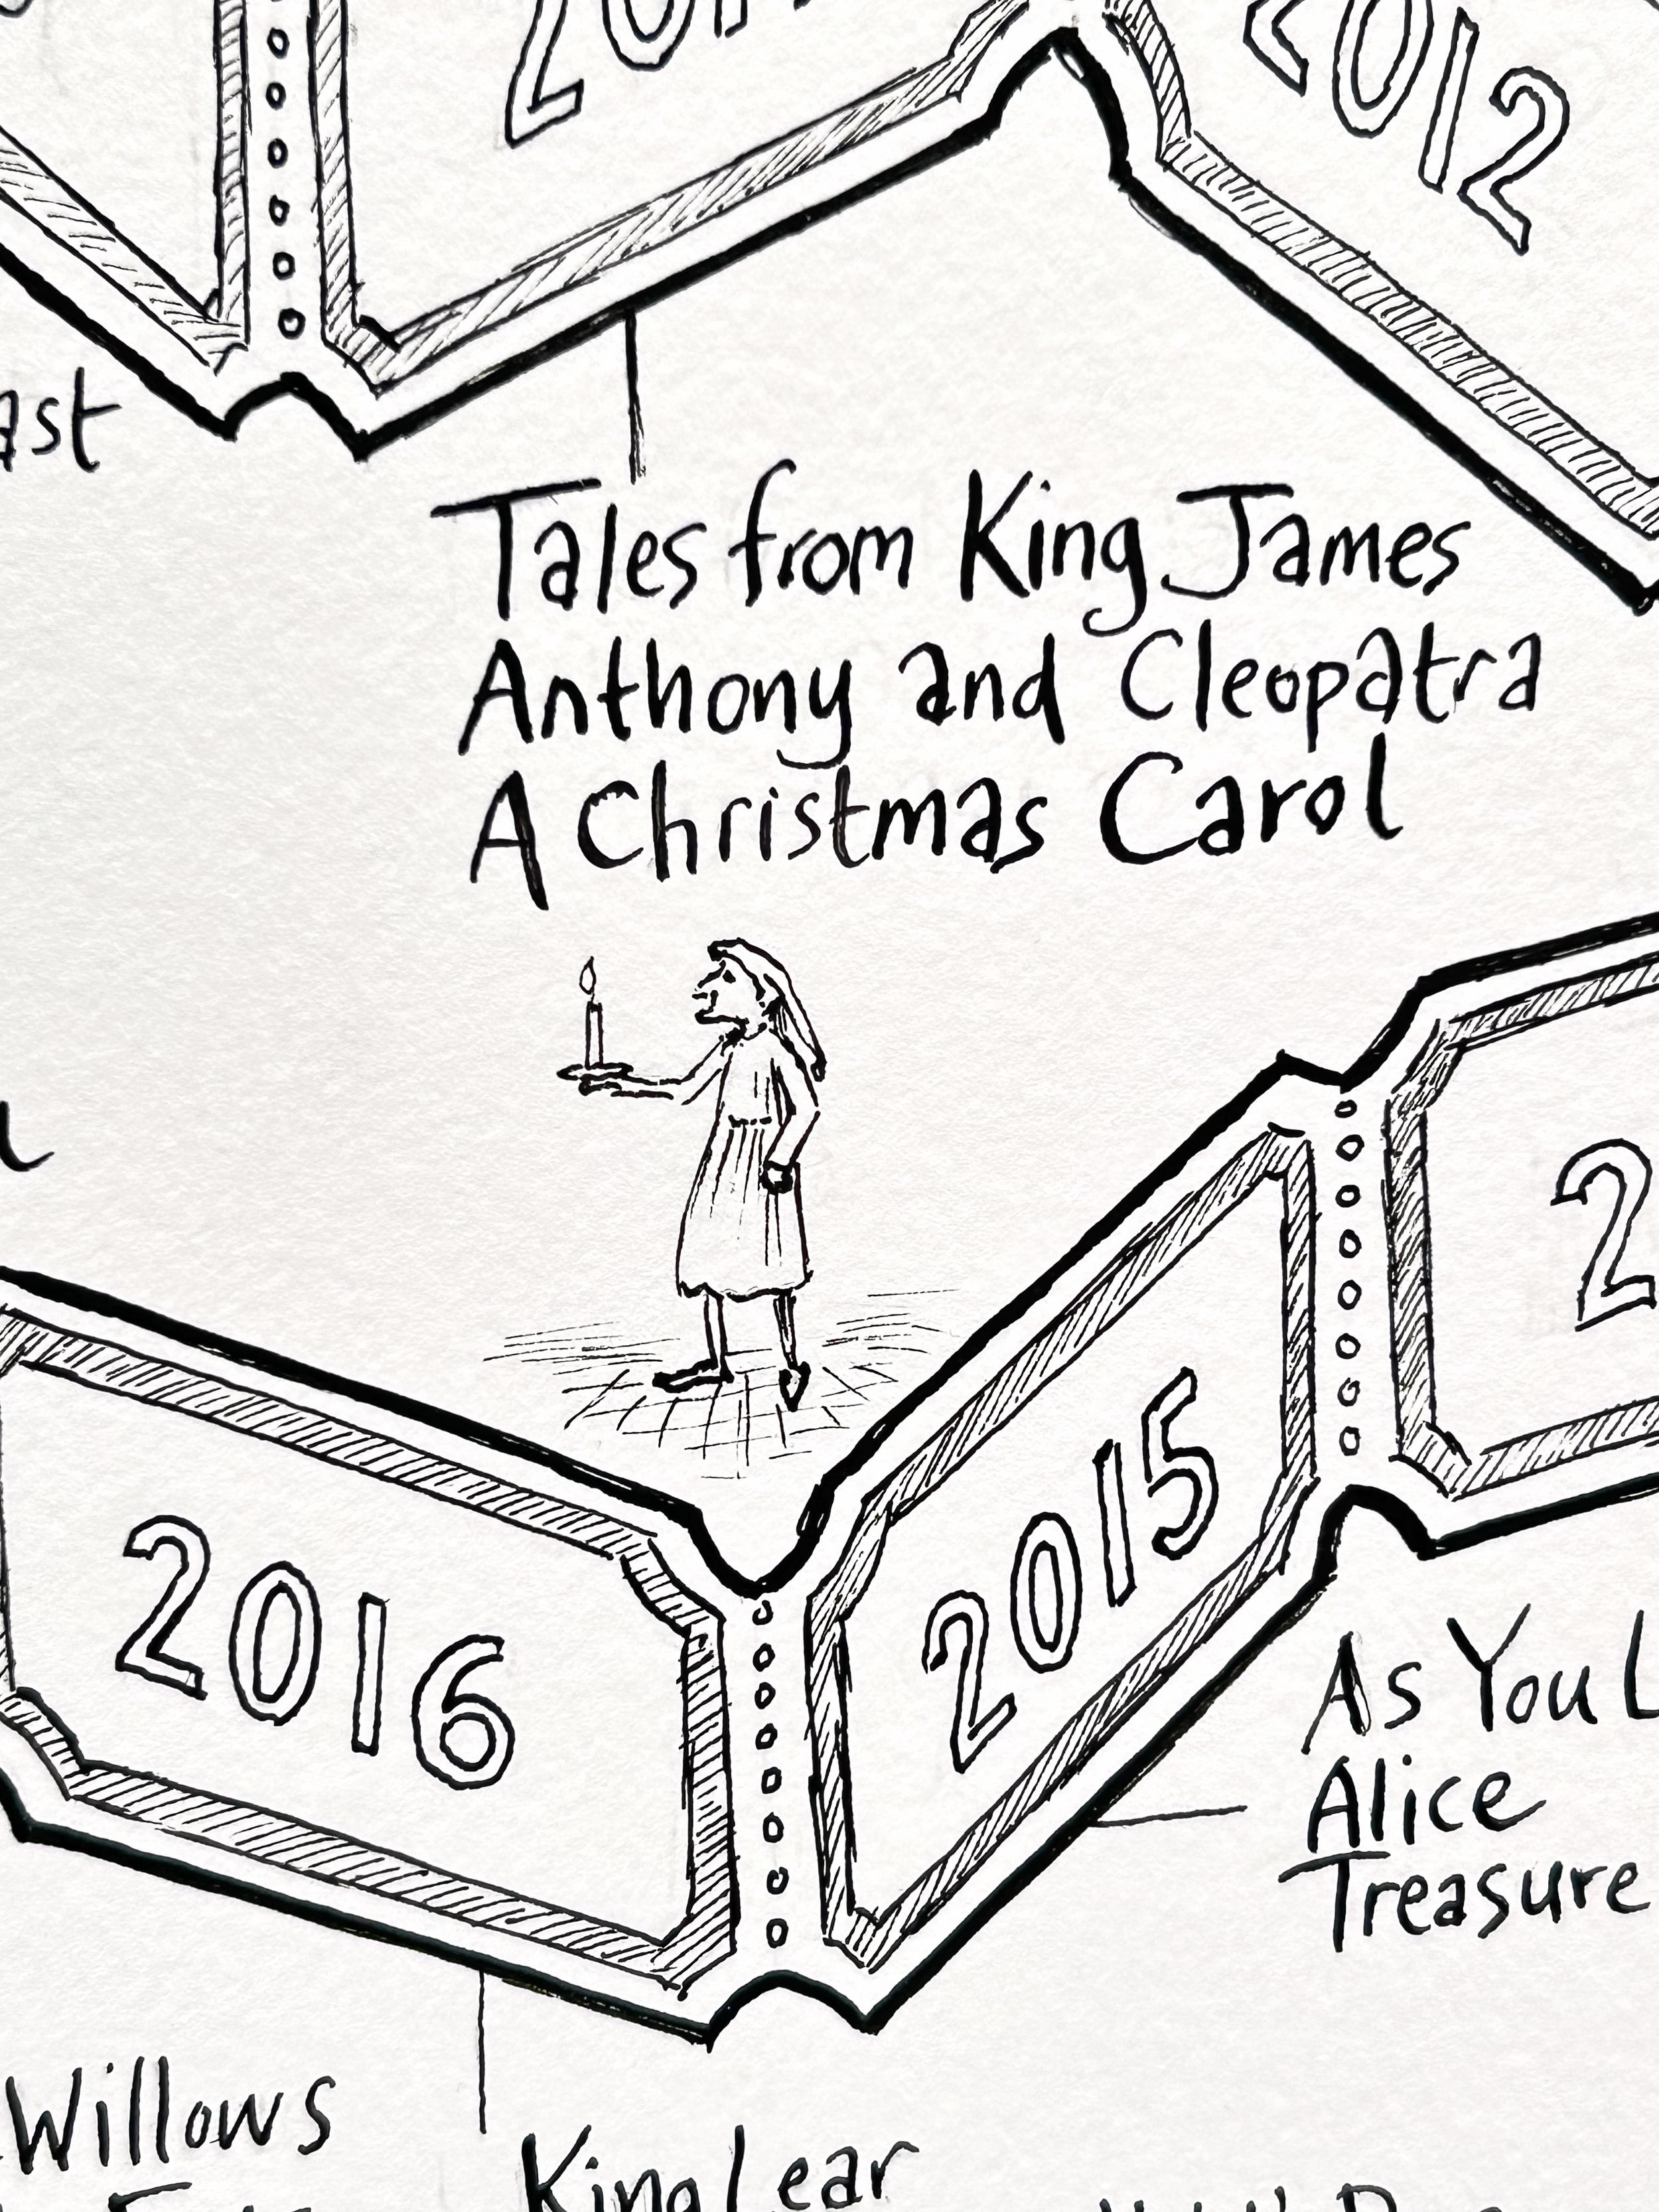 2012
Tales from King James
Anthony and Cleopatra
A Christmas Carol
2016
2015
As You
Alice
Treasure
Willows
King Lear